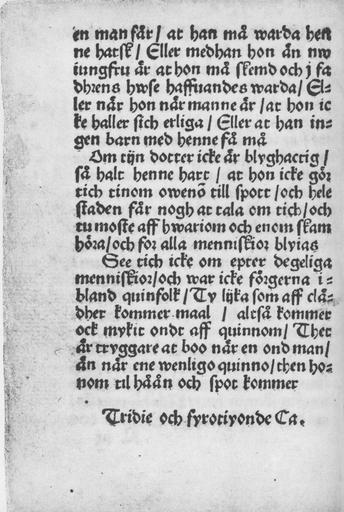 en man får / at han må warda hen
ne hatsk / Eller medhan hon än nw
iungfru är at hon må skemd och j fa
dhrens hwse haffuandes warda / El-
ler när hon när manne är / at hon ic
ke haller sich erliga / Eller at han in-
gen barn med henne få må
Om tijn dotter icke är blyghactig /
så halt henne hart / at hon icke gör
tich tinom owenō till spott / och hele
staden får nogh at tala om tich / och
tu moste aff hwariom och enom skam
höra / och for alla menniskior blyias
See tich icke om epter degeliga
menniskior / och war icke förgerna i-
bland quinfolk / Ty lijka som aff clä-
dher kommer maal / altså kommer
ock mykit ondt aff quinnom / Thet
är tryggare at boo när en ond man /
än när ene wenligo quinno / then ho-
nom til håån och spot kommer
Tridie och fyrotiyonde Ca.